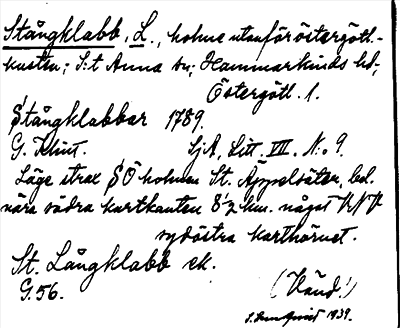 Stångklabb, L., holme utanför östergötl.-
kusten; S:t Anna sn; Hammarkinds hd;
Östergötl. l.
Stångklabbar 1789.
G. Klint. SjA, Litt. VII. N:o 9.
Läge strax SÖ holmen St. Äppelsäter, bel.
nära södra kartkanten 8½ km. något NNV
sydöstra karthörnet.
St. Långklabb ek.
G. 56. (Vänd!)
1939.